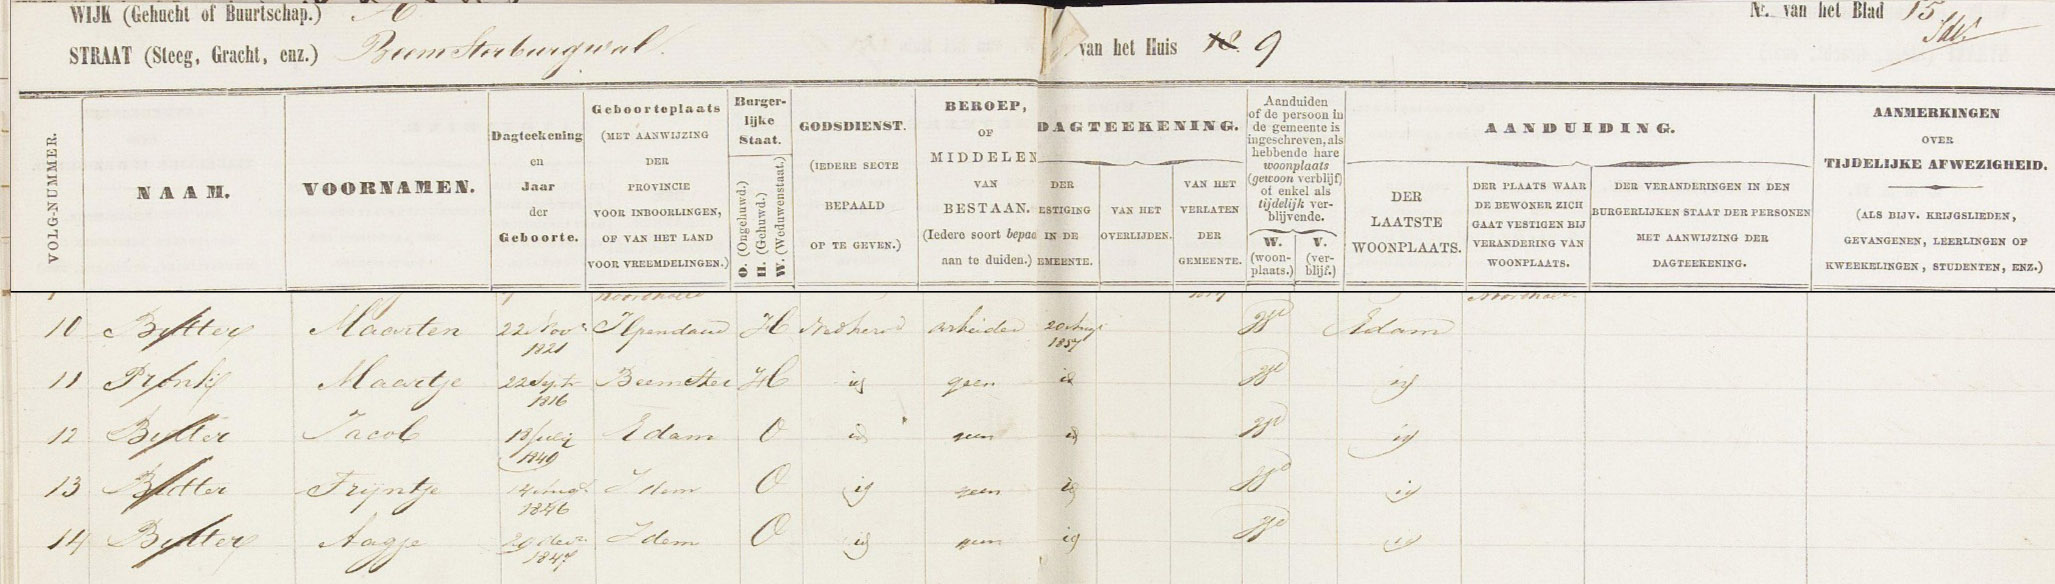 WIJK (Gehucht of Buurtschap.) A
Nr. van het Blad 15
STRAAT (Steeg, Gracht, enz.) Beemsterburgwal
van het Huis 18. 9
VOLG-NUMMER.
NAAM.
VOORNAMEN.
Dagteekening
en
Jaar
der
Geboorte.
Geboorteplaats
(MET AANWIJZING
DER
PROVINCIE
VOOR INBOORLINGEN,
OF VAN HET LAND
VOOR VREEMDELINGEN.)
Burger-
lijke
Staat.
O. (Ongehuwd.)
H. (Gehuwd.)
W. (Weduwenstaat.)
GODSDIENST.
(IEDERE SECTE
BEPAALD
OP TE GEVEN.)
BEROEP,
OF
MIDDELEN
VAN
BESTAAN.
(Iedere soort bepaa
aan te duiden.)
DAGTEEKENING.
DER
ESTIGING
IN DE
EMEENTE.
VAN HET
OVERLIJDEN.
VAN HET
VERLATEN
DER
GEMEENTE.
Aanduiden
of de persoon in
de gemeente is
ingeschreven, als
hebbende hare
woonplaats
(gewoon verblijf)
of enkel als
tijdelijk ver-
blijvende.
W.
(woon-
plaats.)
V.
(ver-
blijf.)
AANDUIDING.
DER
LAATSTE
WOONPLAATS.
DER PLAATS WAAR
DE BEWONER ZICH
GAAT VESTIGEN BIJ
VERANDERING VAN
WOONPLAATS.
DER VERANDERINGEN IN DEN
BURGERLIJKEN STAAT DER PERSONEN
MET AANWIJZING DER
DAGTEEKENING.
AANMERKINGEN
OVER
TIJDELIJKE AFWEZIGHEID.
(ALS BIJV. KRIJGSLIEDEN,
GEVANGENEN, LEERLINGEN OF
KWEEKELINGEN, STUDENTEN, ENZ.)
10 Butter Maarten 22 Nov 1821 Ilpendam H Nedherv arbeider 20 Aug 1857 W Edam
11 Pronk Maartje 22 Sept 1816 Beemster H id geen id W id
12 Butter Jacob 18 Julij 1840 Edam O id geen id W id
13 Butter Trijntje 14 1846 Idem O id geen id W id
14 Butter Aagje 29 1847 Idem O id geen id W id